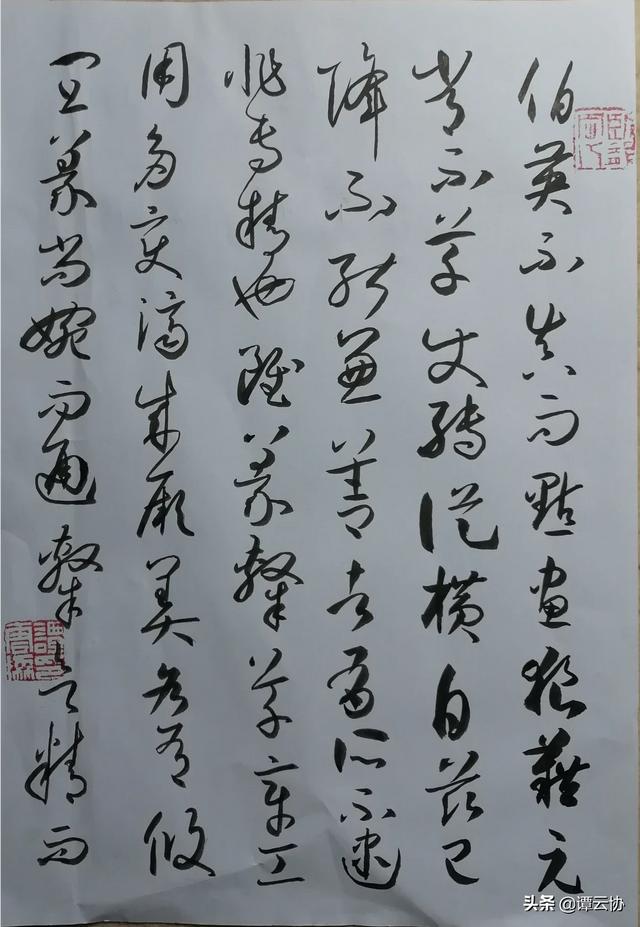 伯英不真而點畫狼藉元
常不草使轉縱橫自茲已
降不能兼善者有所不逮
非專精也雖篆隸草章工
用多變濟成厥美各有攸
宜篆尚婉而通隸欲精而
头条 @谭云协